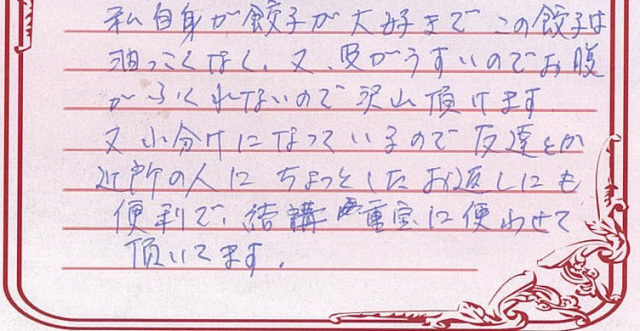 私自身が餃子が大好きで この餃子は
油っこくなく、又、皮がうすいのでお腹
がふくれないので沢山頂けます
又小分けになっているので友達とか
近所の人にちょっとしたお返しにも
便利で、結構 重宝に使わせて
頂いてます。